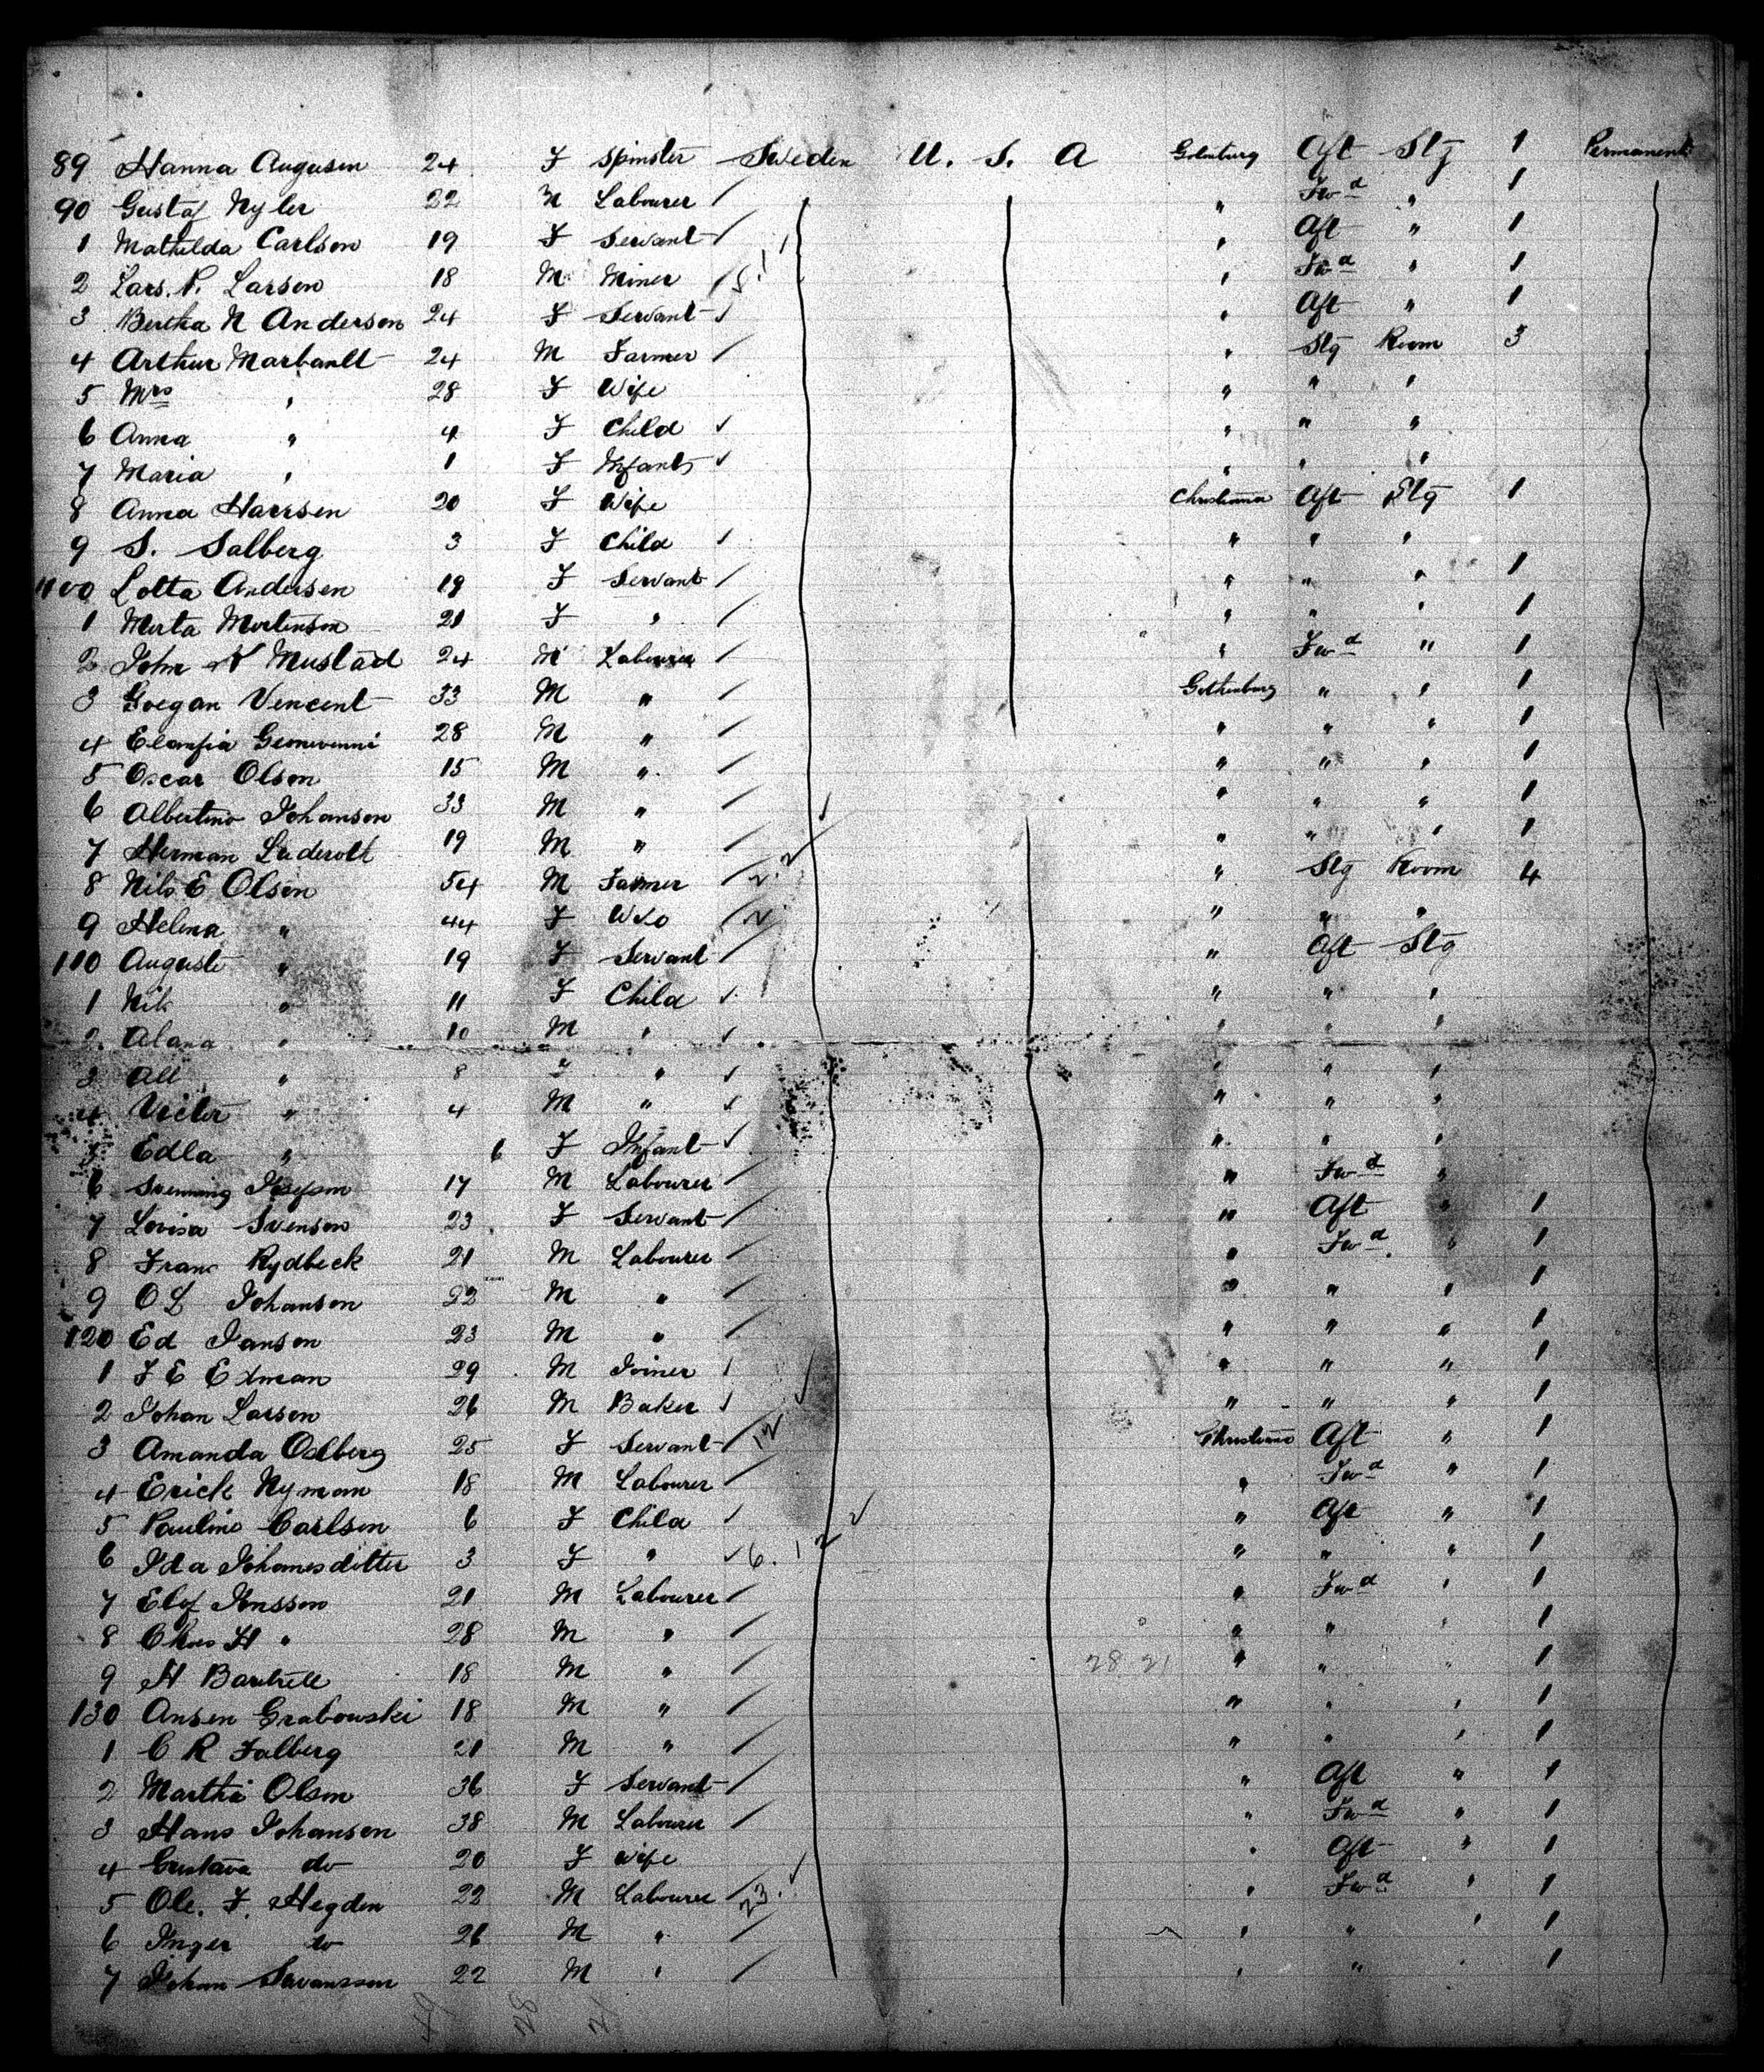 89 Hanna Augusen 24 F Spinster Sweden U. S. A Gotenburg Aft Stg 1 Permanent
90 Gustaf Nyler 22 M Labourer / " Fwd " 1
1 Mathilda Carlson 19 F Servant / " Aft " 1
2 Lars. P. Larson 18 M Miner / " Fwd " 1
3 Bertha N Anderson 24 F Servant ✓ " Aft " 1
4 Arthur Marbault 24 M Farmer / " Stg Room 3
5 Mrs " 28 F Wife " " "
6 Anna " 4 F Child ✓ " " "
7 Maria " 1 F Infant ✓ " " "
8 Anna Harrsen 20 F Wife Christiania Aft Stg 1
9 S. Salberg 3 F Child ✓ " " "
1100 Lotta Andersen 19 F Servant / " " " 1
1 Merta Mortenson 21 F " / " " " 1
2 John A Mustad 24 M Labourer / " Fwd " 1
3 Goegan Vencent 33 M " / Gothenburg " " 1
4 28 M " / " " " 1
5 Oscar Olson 15 M " / " " " 1
6 Albertino Johanson 33 M " / " " " 1
7 Herman Luderolt 19 M " / " " " 1
8 Nils E Olsen 54 M Farmer / " Stg Room 4
9 Helena " 44 F / " " "
110 Auguste " 19 F Servant / " Aft Stg
1 Nik " 11 F Child ✓ " " "
2 Alana " 10 M " ✓ " " "
3 All " 8 " ✓ " " "
4 Victor " 4 M " ✓ " " "
5 Edla " 6 F Infant ✓ " " "
6 Svenning 17 M Labourer / " Fwd "
7 Lovisa Svenson 23 F Servant / " Aft " 1
8 Franc Rydbeck 21 M Labourer / " Fwd " 1
9 O L Johanson 22 M " / " " " 1
120 Ed Janson 23 M " / " " " 1
1 F E Exman 29 M Joiner / " " " 1
2 Johan Larsen 26 M Baker ✓ " " " 1
3 Amanda Oslberg 25 F Servant / 12 Christiania Aft " 1
4 Erick Nyman 18 M Labourer / " Fwd " 1
5 Pauline Carlson 6 F Child ✓ " Aft " 1
6 Ida Johanesdotter 3 F " ✓ 6. 12 " " " 1
7 Elof Jonsson 21 M Labourer / " Fwd " 1
8 Chas H " 28 M " / " " " 1
9 H 18 M " / 28 21 " " " 1
130 Ansen Grabowski 18 M " / " " " 1
1 C R Falberg 21 M " / " " " 1
2 Martha Olson 36 F Servant / " Aft " 1
3 Hans Johansen 38 M Labourer / " Fwd " 1
4 Gustava do 20 F Wife " Aft " 1
5 Ole. F. Hegden 22 M Labourer / 23. ✓ " Fwd " 1
6 Inger do 26 M " / " " " 1
7 Johan Savansson 22 M " / " " " 1
49 28 21